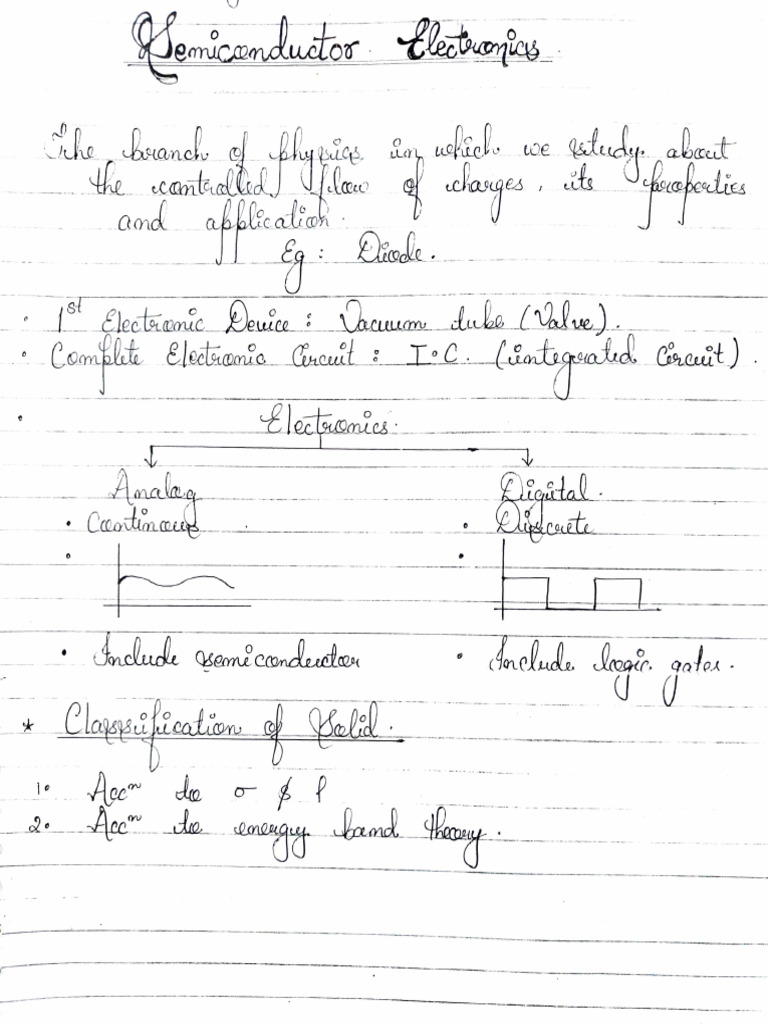 Semiconductor Electronics
The branch of physics in which we study about
the controlled flow of charges, its properties
and application.
Eg : Diode.
• 1st Electronic Device : Vacuum tube (Valve).
• Complete Electronic Circuit : I.C. (integrated Circuit).
• Electronics.
Analog Digital.
• Continous • Discrete
• Include semiconductor • Include logic gates.
* Classification of Solid.
1. Accn to σ & ρ
2. Accn to energy band theory.